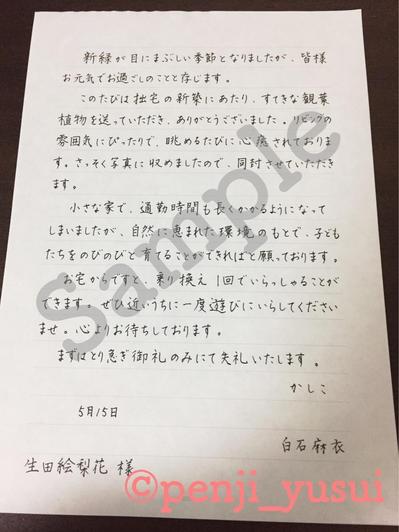 新緑が目にまぶしい季節となりましたが、皆様
お元気でお過ごしのことと存じます。
このたびは拙宅の新築にあたり、すてきな観葉
植物を送っていただき、ありがとうございました。リビングの
雰囲気にぴったりで、眺めるたびに心癒されておりま
す。さっそく写真に収めましたので、同封させていただき
ます。
小さな家で、通勤時間も長くかかるようになって
しまいましたが、自然に恵まれた環境のもとで、子ども
たちをのびのびと育てることができればと願っております。
お宅からですと、乗り換え1回でいらっしゃることが
できます。ぜひ近いうちに一度遊びにいらしてください
ませ。心よりお待ちしております。
まずはとり急ぎ御礼のみにて失礼いたします。
かしこ
5月15日
白石麻衣
生田絵梨花 様
Sample
©penji_yusui